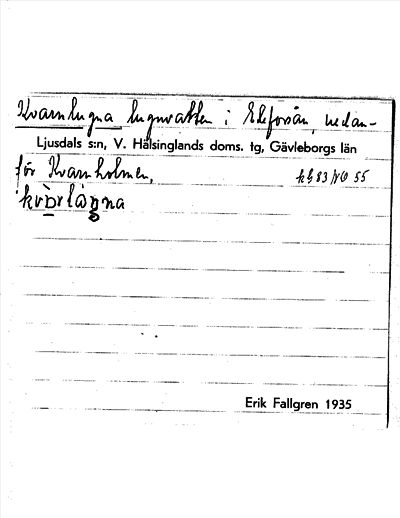 Kvarnlugna lugnvatten i Eleforsån, nedan-
Ljusdals s:n, V. Hälsinglands doms. tg, Gävleborgs län
för Kvarnholmen.
Erik Fallgren 1935